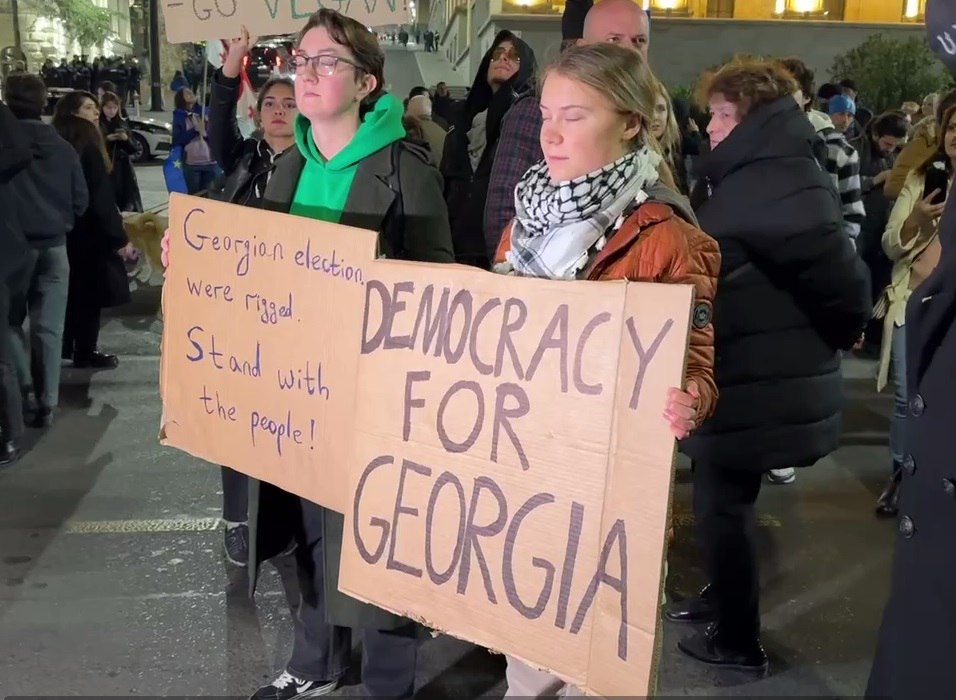 -GO VEGAN!
Georgian election
were rigged.
Stand with
the people!
DEMOCRACY
FOR
GEORGIA